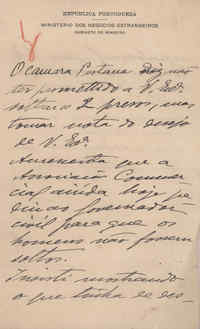 REPUBLICA PORTUGUESA
MINISTERIO DOS NEGOCIOS EXTRANGEIROS
GABINETE DO MINISTRO
O Camara Pestana diz não
ter promettido a V. Exª
soltura 2 presos, mas
tomar nota do desejo
de V. Exª.
Accrescenta que a
Associação Commer-
cial ainda hoje pe-
diu ao governador
civil para que os
homens não fossem
soltos.
Insisti mostrando
o que tinha de des-